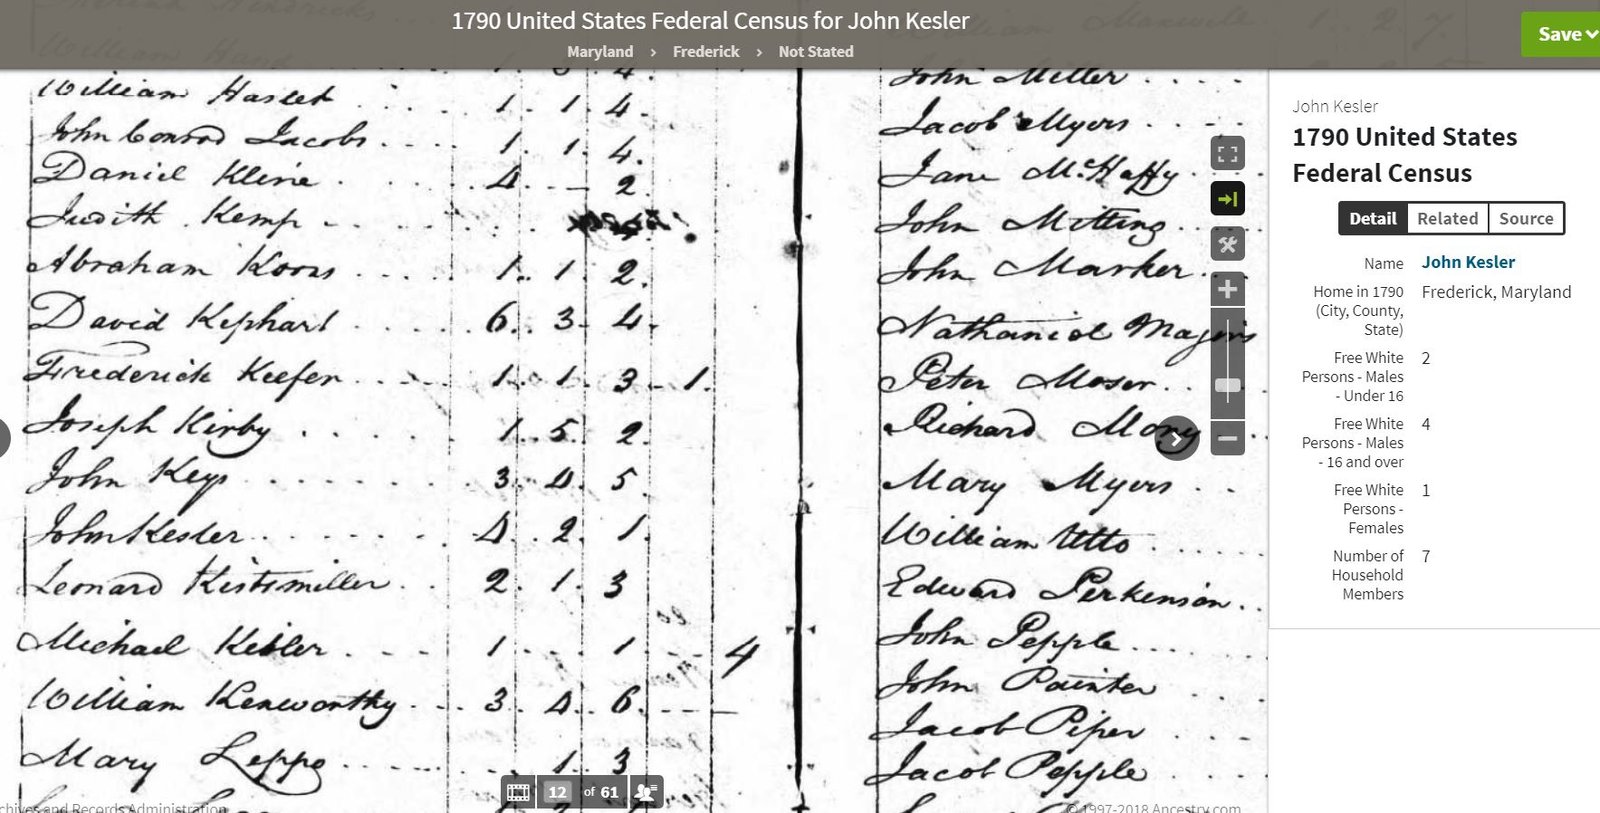 1790 United States Federal Census for John Kesler
Maryland > Frederick > Not Stated
Save
William Haslet 1. 1. 4.
John Conrod Jacobs. 1. 1. 4.
Daniel Kline 4 — 2.
Judith Kemp
Abraham Koons 1. 1. 2.
David Kephart 6. 3. 4.
Frederick Keefer 1. 1. 3 1.
Joseph Kirby 1. 5. 2.
John Keys 3. 4. 5.
John Kesler 4. 2. 1.
Leonard Kistsmiller 2. 1. 3
Michael Keller 1 1 4
William Kenworthy 3. 4. 6.
Mary Leppo 1. 3
John Miller
Jacob Myers
Jane McHaffy
John Mitting
John Marker
Nathaniel Majors
Peter Moser
Richard Mory
Mary Myers
William Utto
Edward Perkenson
John Pepple
John Painter
Jacob Piper
Jacob Pepple
12 of 61
chives and Records Administration
© 1997-2018 Ancestry.com
John Kesler
1790 United States
Federal Census
Detail Related Source
Name John Kesler
Home in 1790 Frederick, Maryland
(City, County,
State)
Free White 2
Persons - Males
- Under 16
Free White 4
Persons - Males
- 16 and over
Free White 1
Persons -
Females
Number of 7
Household
Members